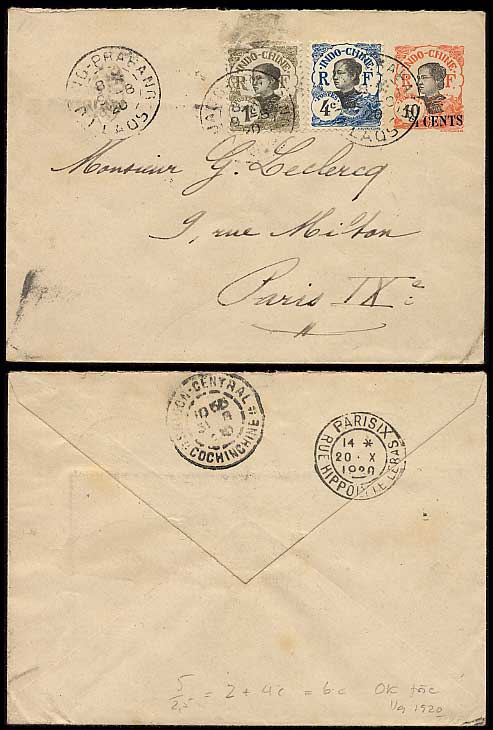 LAOS
INDO-CHINE
R F
1c
INDO-CHINE
R F
4c
INDO-CHINE
R F
10
4 CENTS
LAOS
Monsieur G. Leclercq
9, rue Milton
Paris IXe
SAIGON-CENTRAL
COCHINCHINE
PARIS IX
14 *
20 · X
1920
RUE HIPPOLYTE LEBAS
5
2,5 = 2 + 4c = 6c OK
1/9 1920